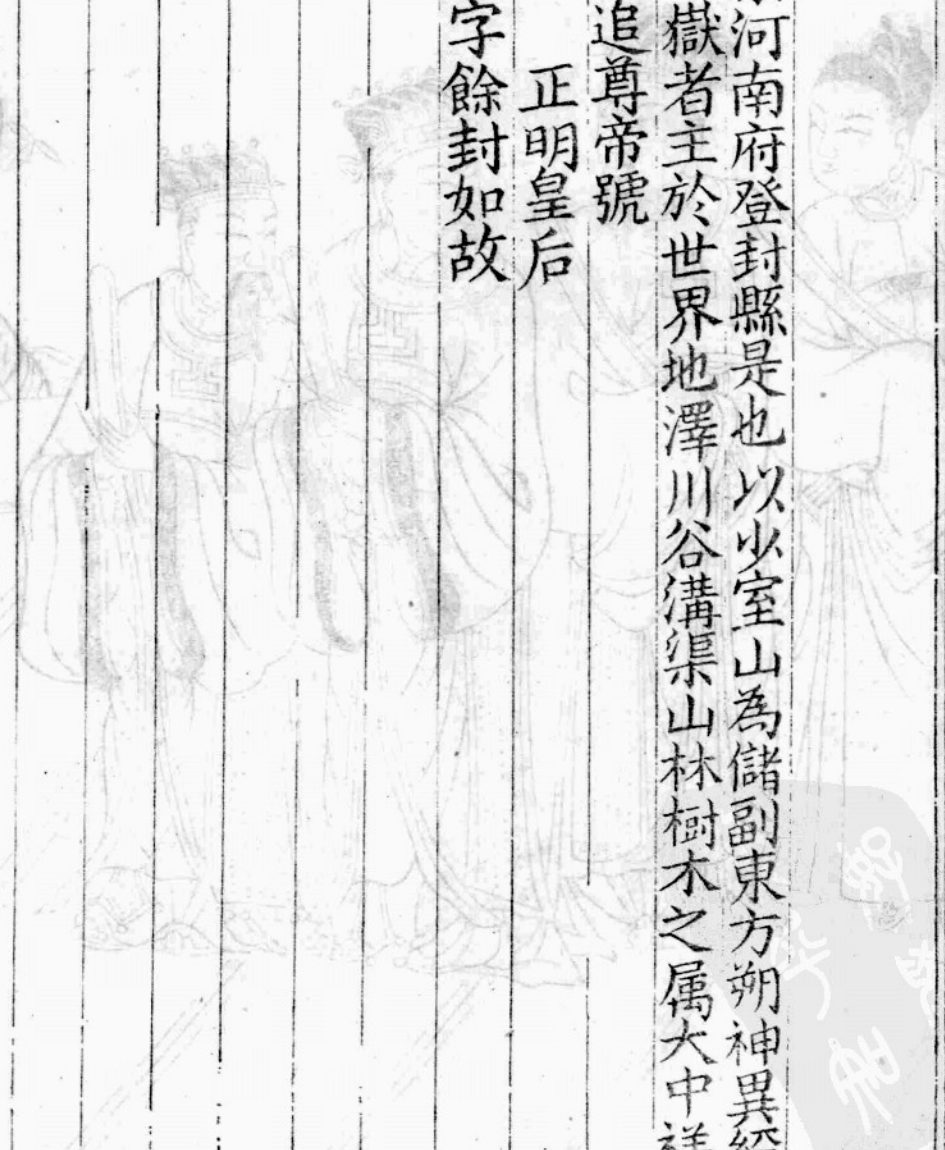 河南府登封縣是也以少室山為儲副東方朔神異經
嶽者主於世界地澤川谷溝渠山林樹木之属大中祥
追尊帝號
正明皇后
字餘封如故